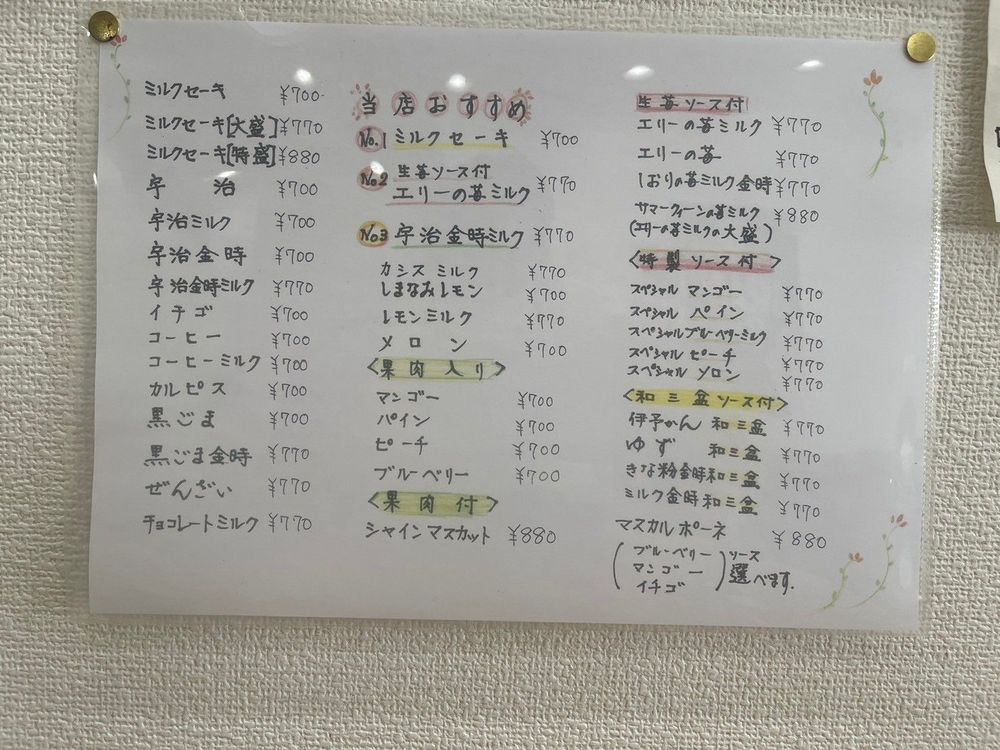 ミルクセーキ ¥700
ミルクセーキ[大盛] ¥770
ミルクセーキ[特盛] ¥880
宇治 ¥700
宇治ミルク ¥700
宇治金時 ¥700
宇治金時ミルク ¥770
イチゴ ¥700
コーヒー ¥700
コーヒーミルク ¥700
カルピス ¥700
黒ごま ¥700
黒ごま金時 ¥770
ぜんざい ¥770
チョコレートミルク ¥770
当店おすすめ
No.1 ミルクセーキ ¥700
No2 生苺ソース付
エリーの苺ミルク ¥770
No3 宇治金時ミルク ¥770
カシスミルク ¥770
しまなみレモン ¥700
レモンミルク ¥770
メロン ¥700
<果肉入り>
マンゴー ¥700
パイン ¥700
ピーチ ¥700
ブルーベリー ¥700
<果肉付>
シャインマスカット ¥880
生苺ソース付
エリーの苺ミルク ¥770
エリーの苺 ¥770
しおりの苺ミルク金時 ¥770
サマークィーンの苺ミルク ¥880
(エリーの苺ミルクの大盛)
<特製ソース付>
スペシャル マンゴー ¥770
スペシャル パイン ¥770
スペシャルブルーベリーミルク ¥770
スペシャル ピーチ ¥770
スペシャル メロン ¥770
<和三盆ソース付>
伊予かん 和三盆 ¥770
ゆず 和三盆 ¥770
きな粉金時和三盆 ¥770
ミルク金時和三盆 ¥770
マスカルポーネ ¥880
(ブルーベリー
マンゴー
イチゴ) ソース
選べます.